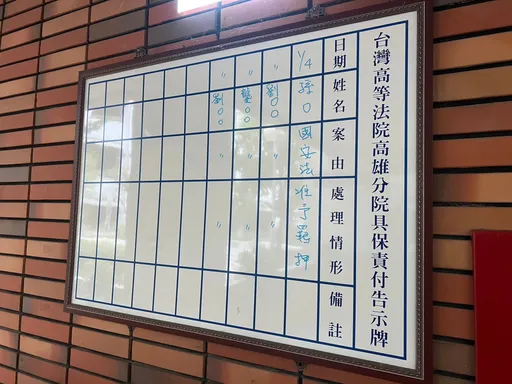 台灣高等法院高雄分院具保責付告示牌
日期 姓名 案由 處理情形 備註
1/4 孫○ 國安法 准予羈押
〃 劉○○ 〃 〃
〃 龔○○ 〃 〃
〃 劉○○ 〃 〃